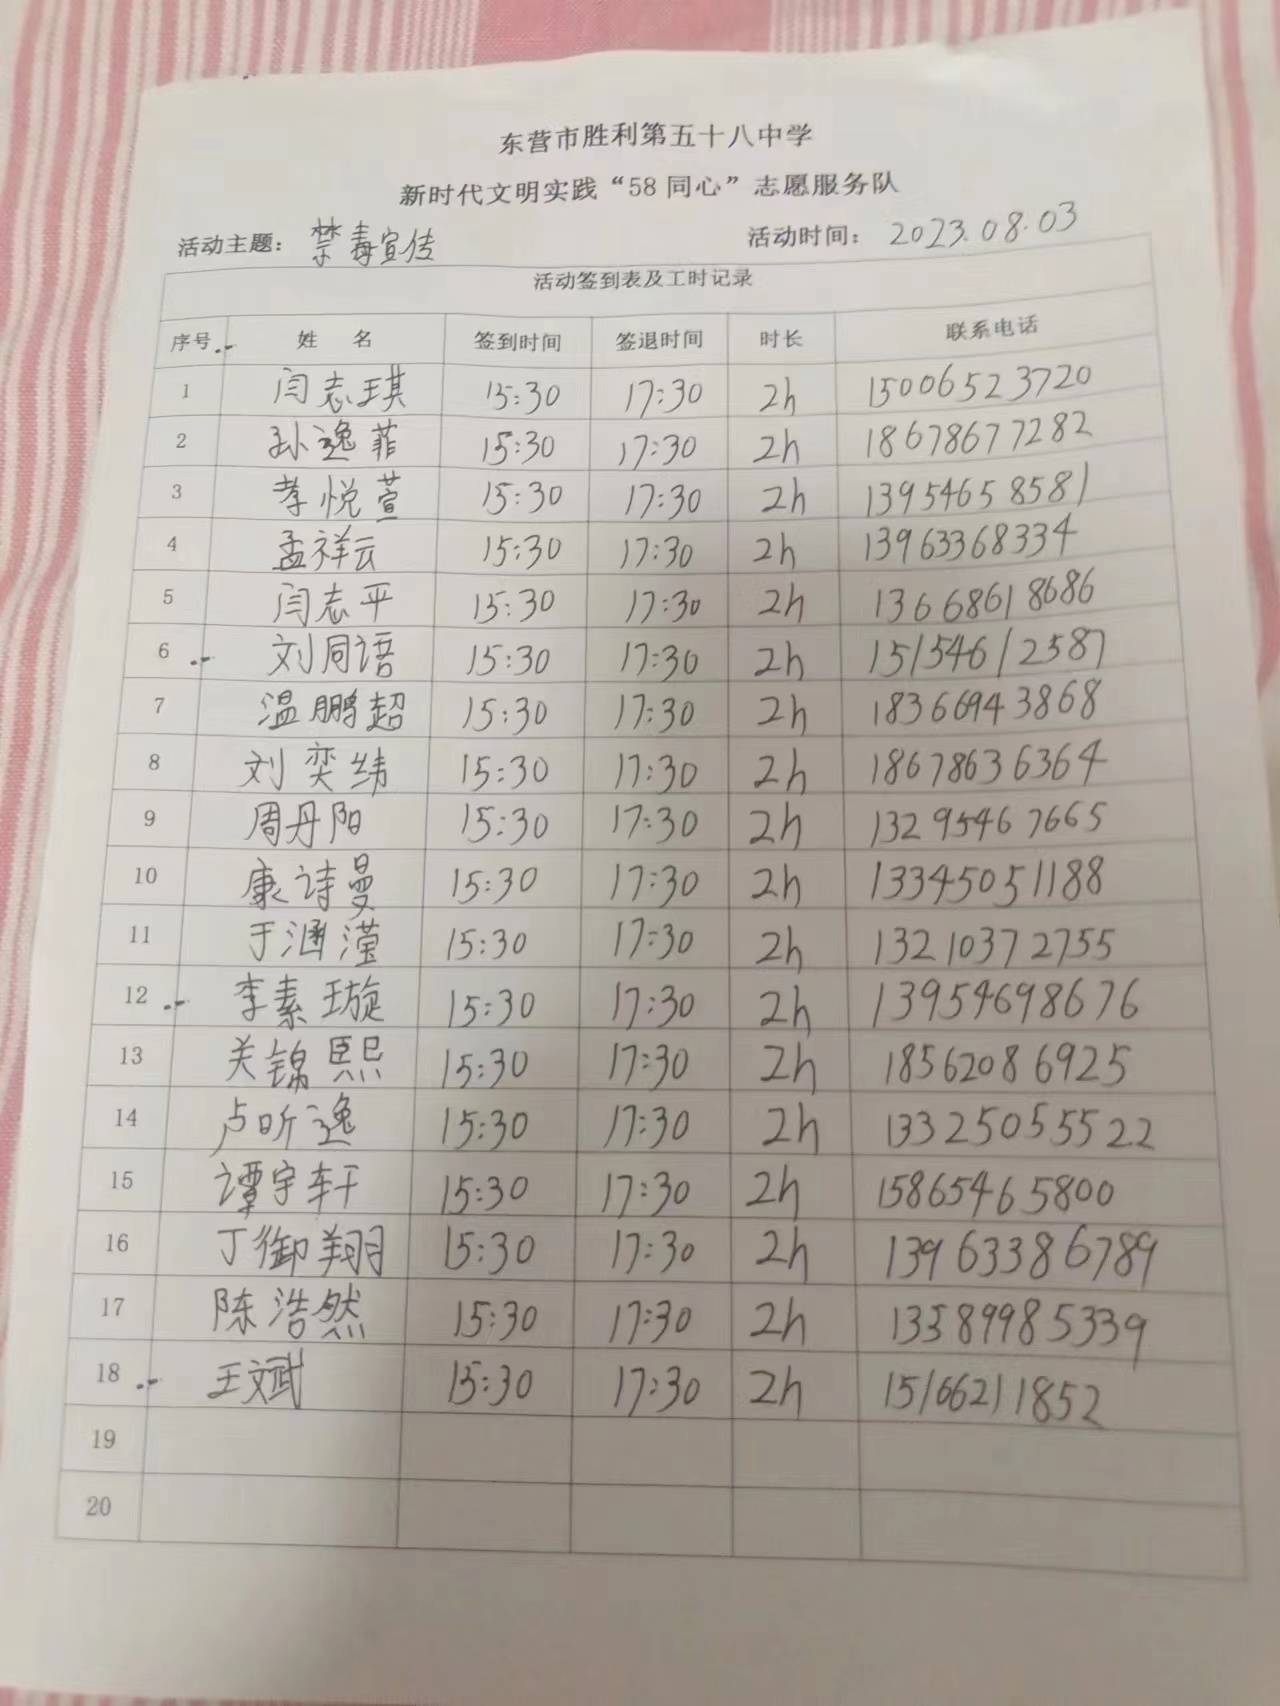 东营市胜利第五十八中学
新时代文明实践“58同心”志愿服务队
活动主题： 禁毒宣传 活动时间： 2023.08.03
活动签到表及工时记录
序号 姓 名 签到时间 签退时间 时长 联系电话
1 闫志琪 15:30 17:30 2h 15006523720
2 孙逸菲 15:30 17:30 2h 18678677282
3 李悦萱 15:30 17:30 2h 13954658581
4 孟祥云 15:30 17:30 2h 13963368334
5 闫志平 15:30 17:30 2h 13668618686
6 刘同语 15:30 17:30 2h 15154612587
7 温鹏超 15:30 17:30 2h 18366943868
8 刘奕纬 15:30 17:30 2h 18678636364
9 周丹阳 15:30 17:30 2h 13295467665
10 康诗曼 15:30 17:30 2h 13345051188
11 于涵滢 15:30 17:30 2h 13210372755
12 李素璇 15:30 17:30 2h 13954698676
13 关锦熙 15:30 17:30 2h 18562086925
14 卢昕逸 15:30 17:30 2h 13325055522
15 谭宇轩 15:30 17:30 2h 15865465800
16 丁御翔 15:30 17:30 2h 13963386789
17 陈浩然 15:30 17:30 2h 13589985339
18 王文斌 15:30 17:30 2h 15166211852
19
20